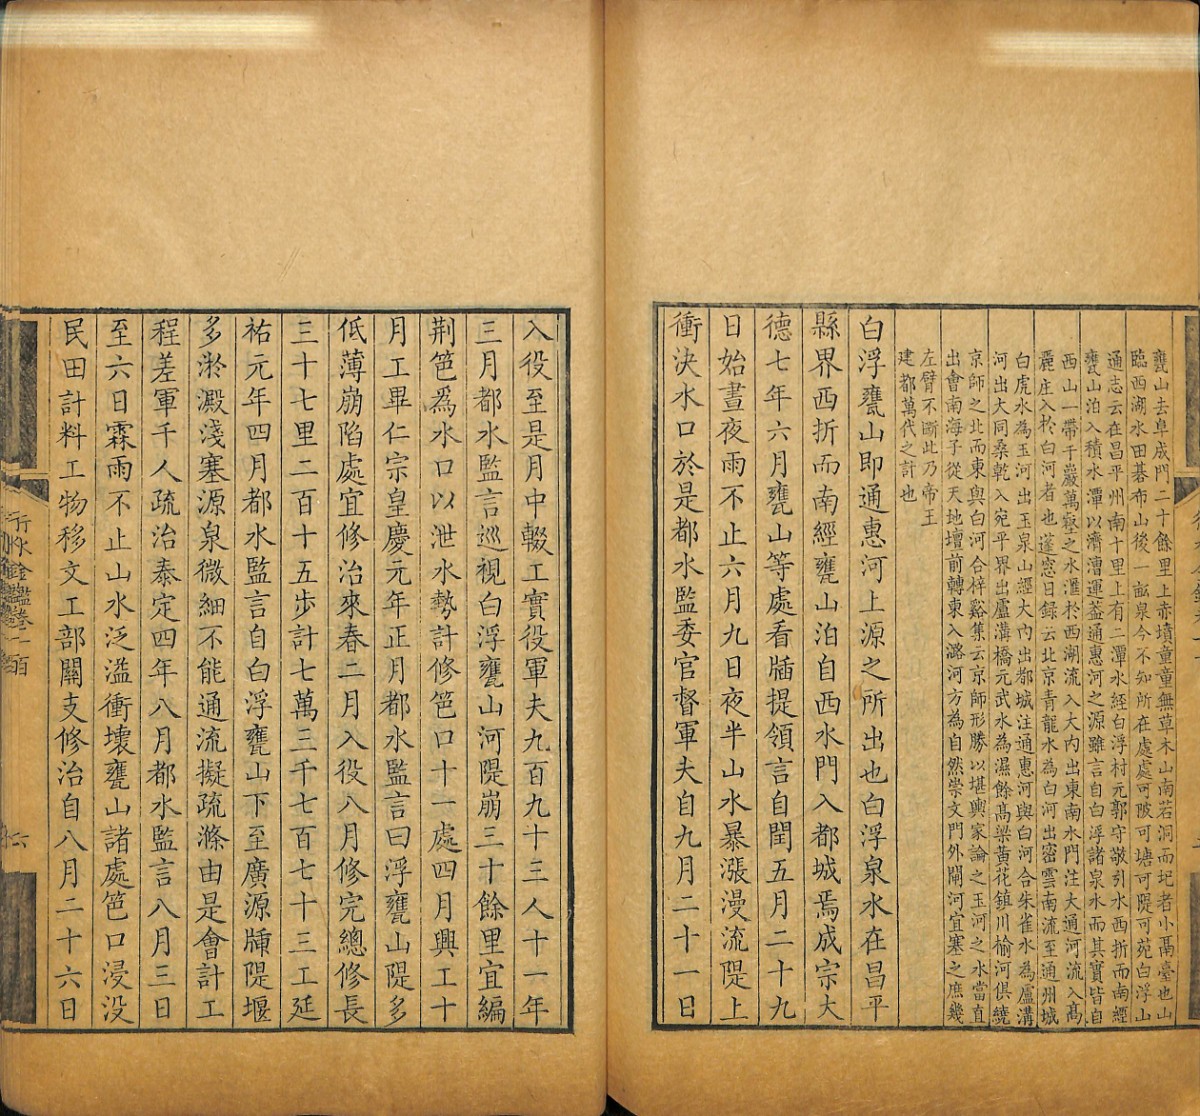 甕山去阜成門二十餘里上赤墳童童無草木山南若洞而圮者小鬲臺也山
臨西湖水田碁布山後一畝泉今不知所在處處可陂可塘可隄可苑白浮山
通志云在昌平州南十里上有二潭水經白浮村元郭守敬引水西折而南經
甕山泊入積水潭以濟漕運葢通惠河之源雖言自白浮諸泉水而其實皆自
西山一帶千巖萬壑之水滙於西湖流入大內出東南水門注大通河流入高
麗庄入於白河者也蓬窓日録云北京青龍水為白河出密雲南流至通州城
白虎水為玉河出玉泉山經大內出都城注通惠河與白河合朱雀水為盧溝
河出大同桑乾入宛平界出盧溝橋元武水為濕餘高梁黃花鎮川榆河俱繞
京師之北而東與白河合梓谿集云京師形勝以堪輿家論之玉河之水當直
出會南海子從天地壇前轉東入潞河方為自然崇文門外閘河宜塞之庶幾
左臂不斷此乃帝王
建都萬代之計也
白浮甕山即通惠河上源之所出也白浮泉水在昌平
縣界西折而南經甕山泊自西水門入都城焉成宗大
德七年六月甕山等處看牐提領言自閏五月二十九
日始晝夜雨不止六月九日夜半山水暴漲漫流隄上
衝決水口於是都水監委官督軍夫自九月二十一日
入役至是月中輟工實役軍夫九百九十三人十一年
三月都水監言巡視白浮甕山河隄崩三十餘里宜編
荆笆爲水口以泄水勢計修笆口十一處四月興工十
月工畢仁宗皇慶元年正月都水監言曰浮甕山隄多
低薄崩陷處宜修治來春二月入役八月修完總修長
三十七里二百十五步計七萬三千七百七十三工延
祐元年四月都水監言自白浮甕山下至廣源牐隄堰
多淤澱淺塞源泉微細不能通流擬疏滌由是會計工
程差軍千人疏治泰定四年八月都水監言八月三日
至六日霖雨不止山水泛滥衝壞甕山諸處笆口浸没
民田計料工物移文工部關支修治自八月二十六日
行水金鑑卷一百
六